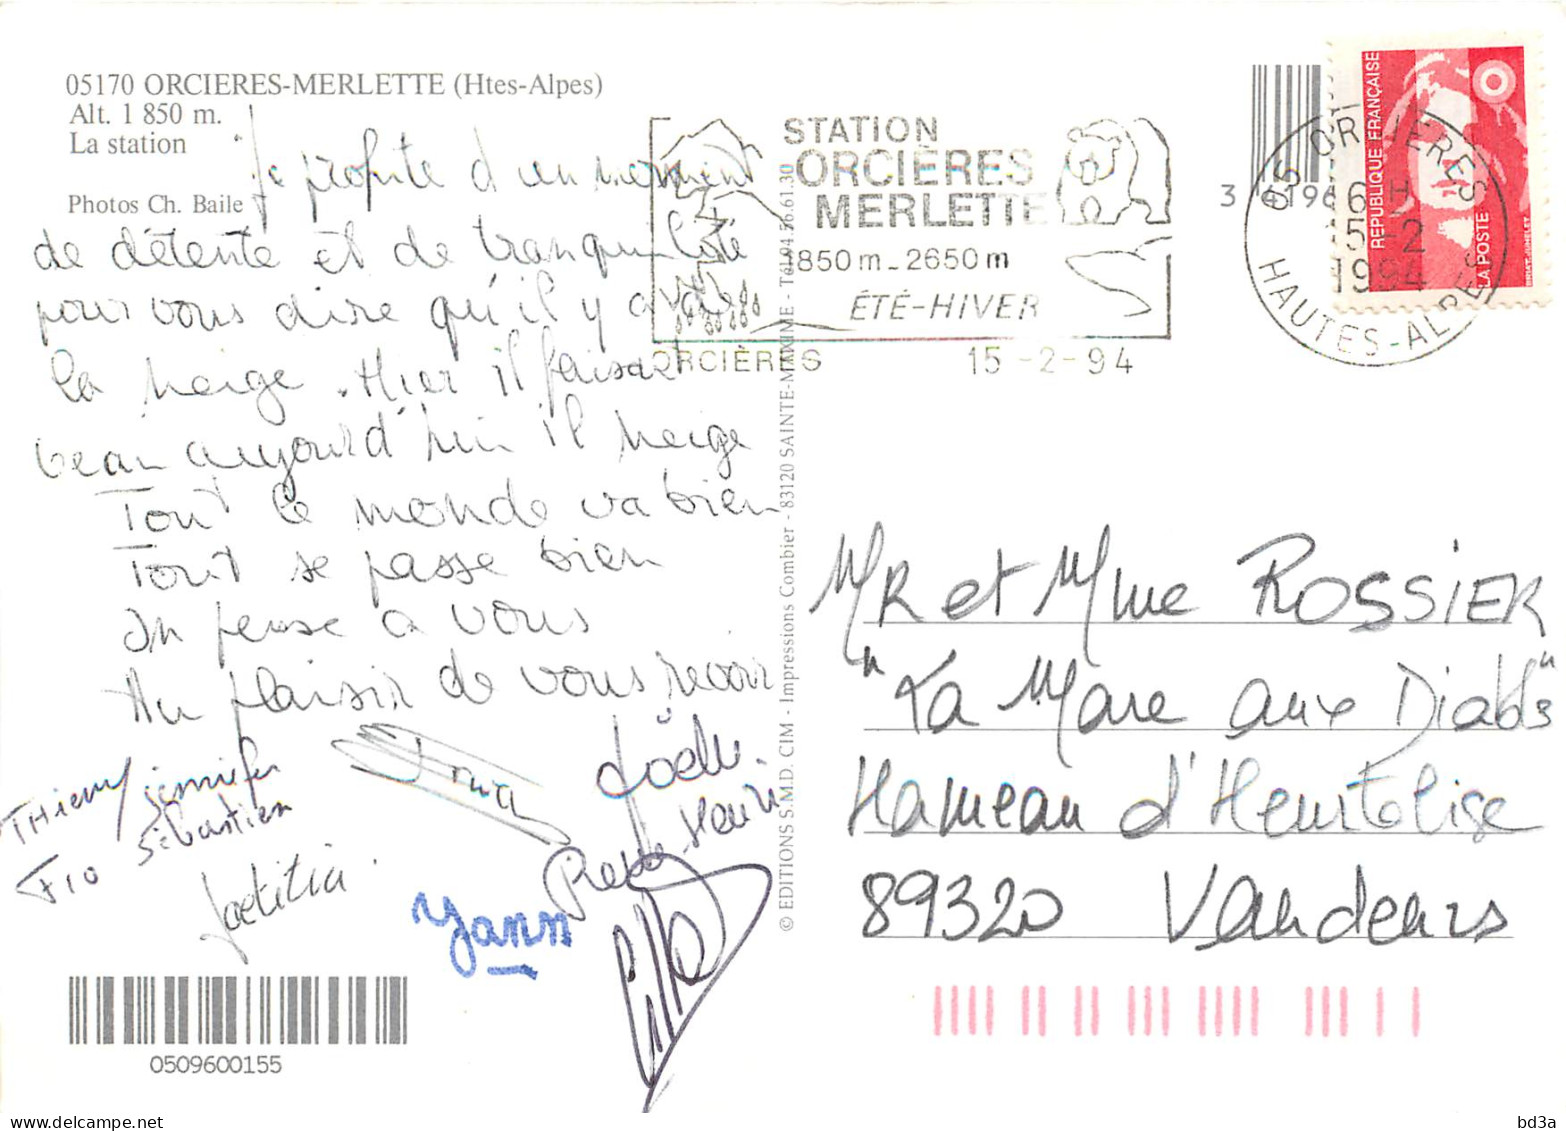 05170 ORCIERES-MERLETTE (Htes-Alpes)
Alt. 1 850 m.
La station
Photos Ch. Baile
Je profite d'un moment
de détente et de tranquilité
pour vous dire qu'il y a de
la neige. Hier il faisait
beau aujourd'hui il neige
Tout le monde va bien
Tout se passe bien
On pense a vous
Au plaisir de vous revoir
Thierry
Jennifer
Sébastien
Flo
Laetitia.
Joëlle.
Pierre-Henri
Yann
0509600155
© EDITIONS S.M.D. CIM - Impressions Combier - 83120 SAINTE-MAXIME - Tél. 94.56.61.30
STATION
ORCIÈRES
MERLETTE
1850 m - 2650 m
ÉTÉ-HIVER
ORCIÈRES 15-2-94
3 4196
05 ORCIERES
16H
15-2
1994
HAUTES-ALPES
REPUBLIQUE FRANÇAISE
LA POSTE
MR et Mme ROSSIER
"La Mare aux Diables"
Hameau d'Heurtebise
89320 Vaudeurs
bd3a